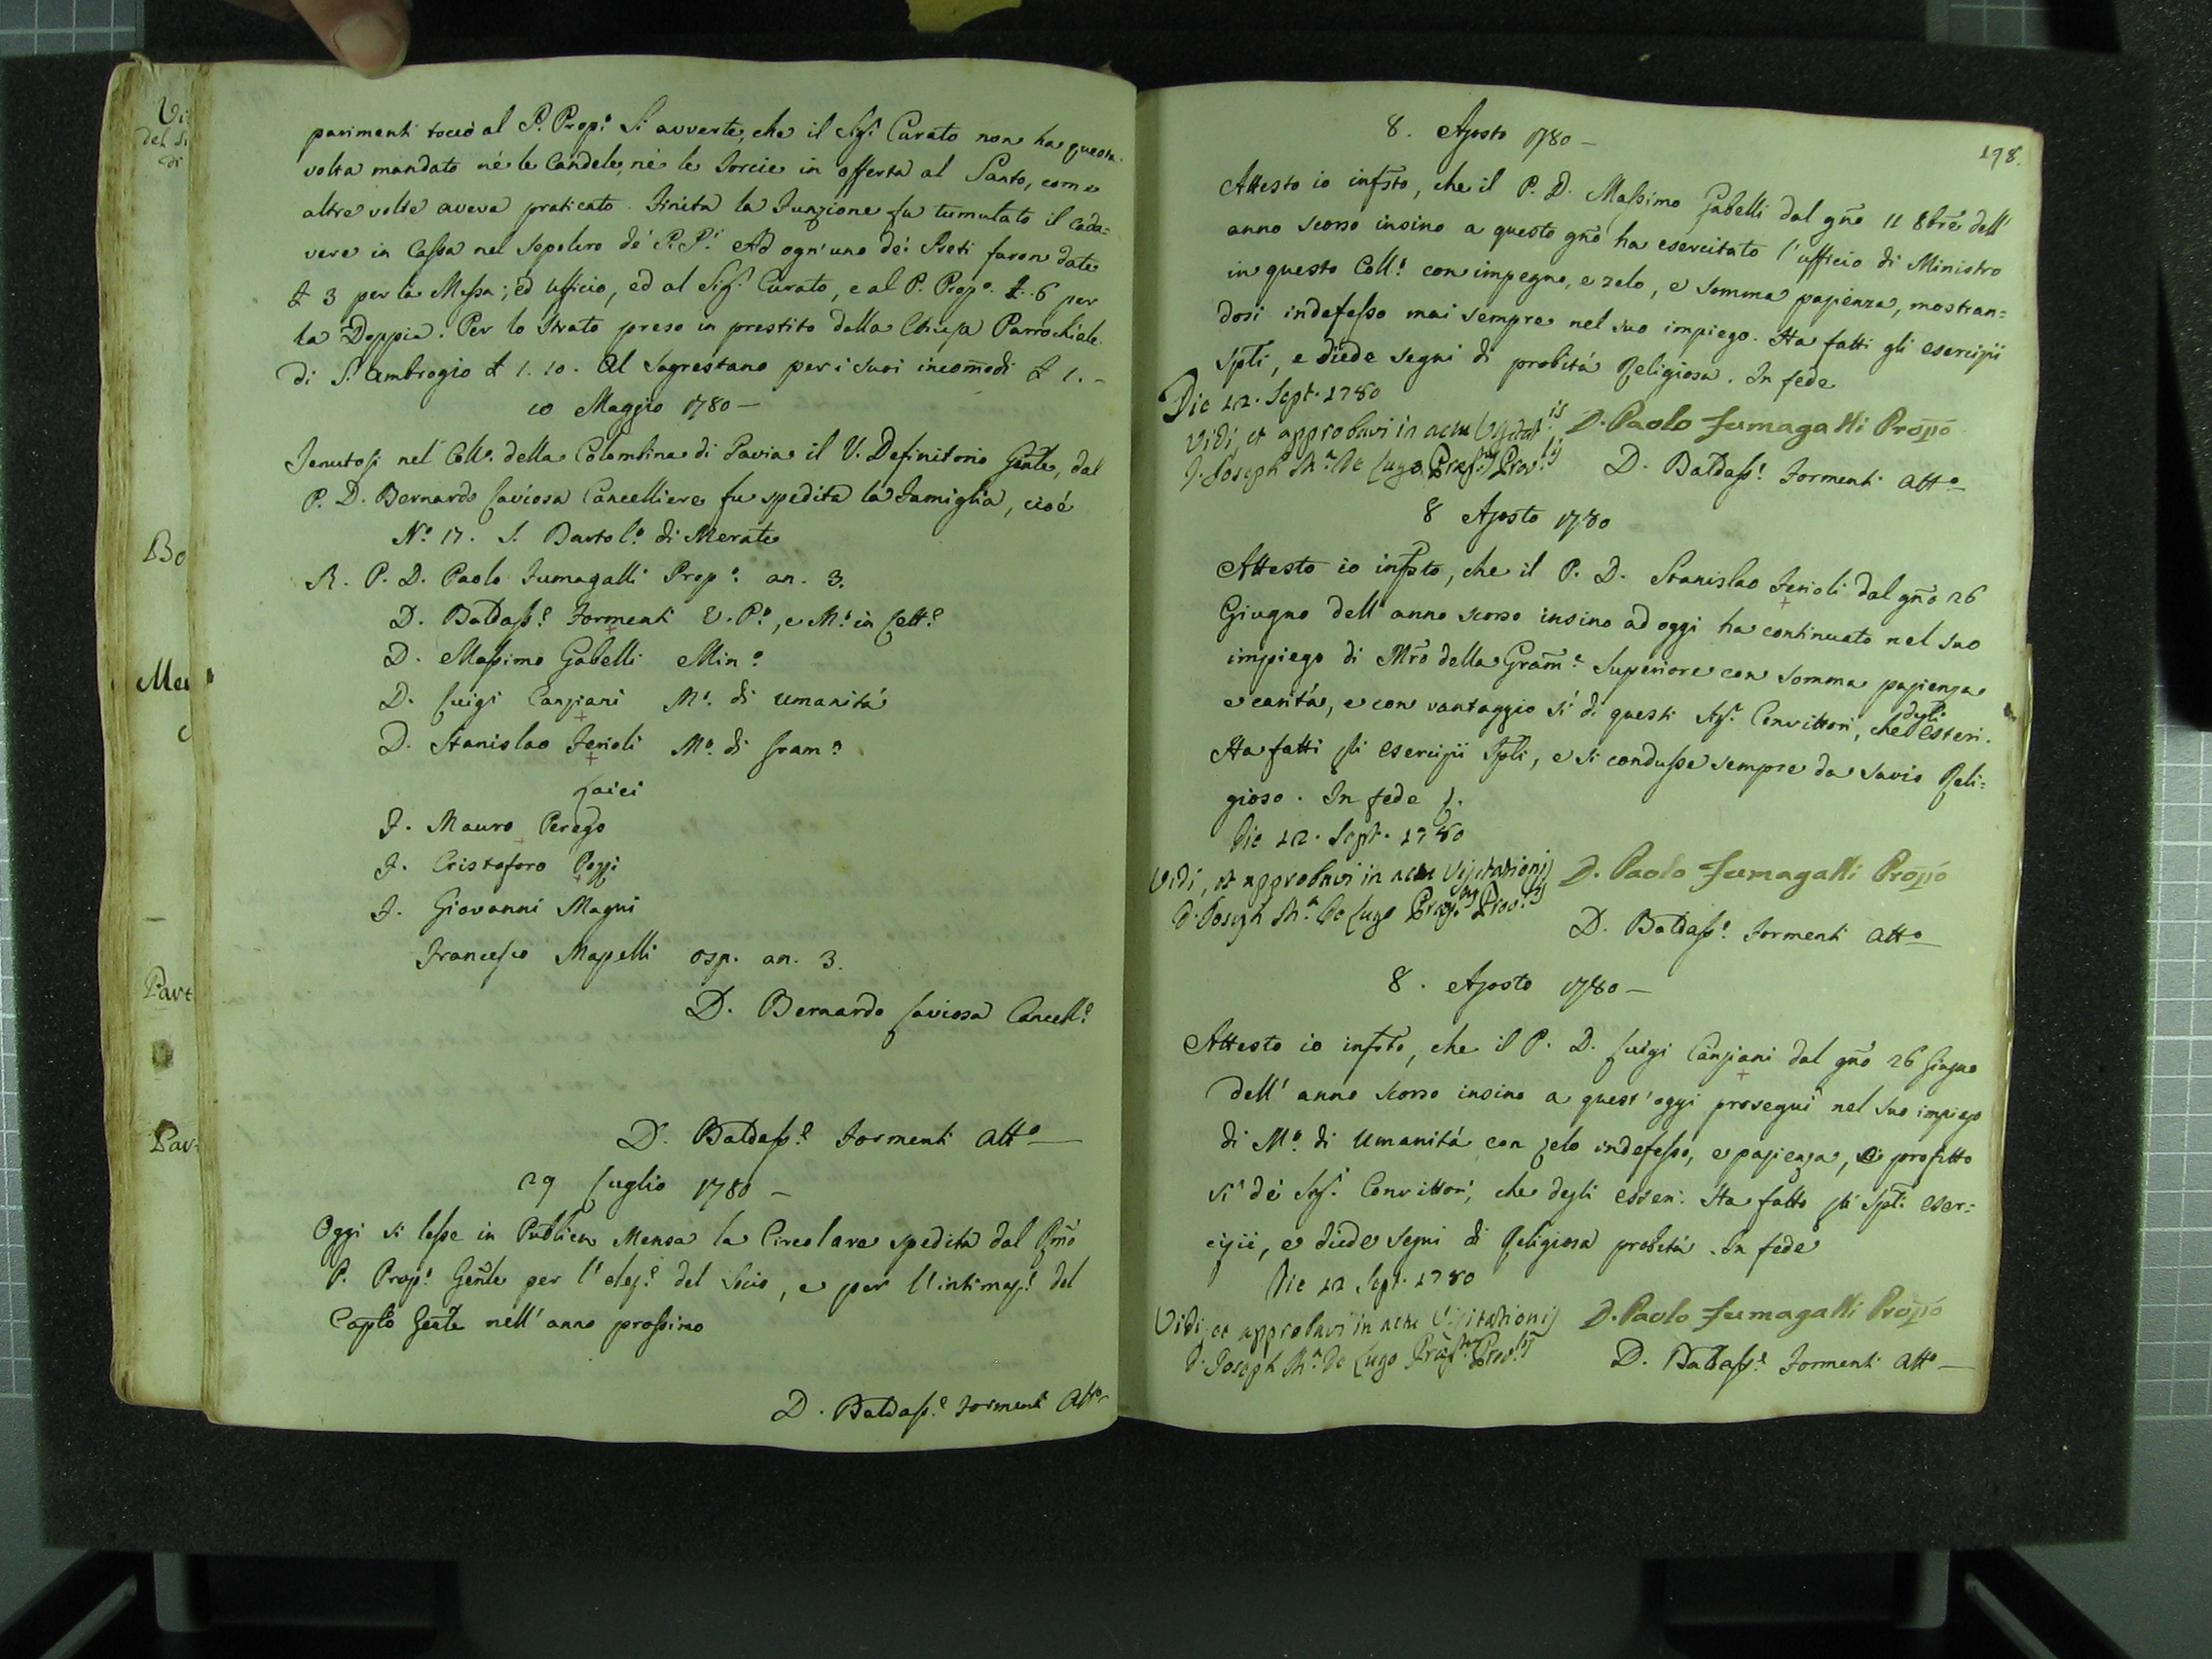 parimenti toccò al P. Prop.o Si avverte, che il Sig.r Curato non ha questa
volta mandato nè le Candele, nè le Torcie in offerta al Santo, come
altre volte aveva praticato. Finita la Funzione fu tumulato il cada=
vere in Cassa nel Sepolcro de' P.P.i Ad ogn'uno de' Preti furon date
£ 3 per la Messa; ed ufficio, ed al Sig.r Curato, e al P. Prop.o £. 6 per
la Doppia. Per lo Strato preso in prestito dalla Chiesa Parrochiale
di S. Ambrogio £ 1. 10. Al Sagrestano per i suoi incomodi £ 1. -
10 Maggio 1780 -
Tenutosi nel Coll.o della Colombina di Pavia il V. Definitorio Gēnle, dal
P. D. Bernardo Laviosa Cancelliere fu spedita la Famiglia, cioè
N.o 17. S. Bartol.o di Merate
R. P. D. Paolo Fumagalli Prop.o an. 3.
D. Baldass.e Formenti V. P.o, e M.o in Lett.e
D. Massimo Gabelli Min.o
D. Luigi Canziani M.o di umanità
D. Stanislao Ferioli M.o di Gram.a
Laici
F. Mauro Perego
F. Cristoforo Pozzi
F. Giovanni Magni
Francesco Mapelli osp. an. 3.
D. Bernardo Laviosa Cancell.e
D. Baldass.e Formenti Att.o
29 Luglio 1780 -
Oggi si lesse in Publica Mensa la Circolare spedita dal Rmo
P. Prop.o Gēnle per l'elez.e del Socio, e per l'intimaz.e del
Caplo Gēnle nell'anno prossimo
D. Baldass.e Formenti Att.o
198.
8. Agosto 1780 -
Attesto io infsto, che il P. D. Massimo Gabelli dal gño 11 8bre dell'
anno scorso insino a questo gño ha esercitato l'ufficio di Ministro
in questo Coll.o con impegno, e zelo, e somma pazienza, mostran=
dosi indefesso mai sempre nel suo impiego. Ha fatti gli esercizii
Spli, e diede segni di probità Religiosa. In fede
Die 12. Sept. 1780
Vidi, et approbavi in actu Visitat.is D. Paolo Fumagalli Propō
D. Joseph M.a De Lugo Præp.us Prov.lis D. Baldass.e Formenti Att.o
8 Agosto 1780
Attesto io infsto, che il P. D. Stanislao Ferioli dal gño 26
Giugno dell'anno scorso insino ad oggi ha continuato nel suo
impiego di Mrō della Gram.a Superiore con somma pazienza
e carità, e con vantaggio sì di questi Sig.ri Convittori, che degli esteri.
Ha fatti gli esercizii Spli, e si condusse sempre da savio Reli=
gioso. In fede
Die 12. Sept. 1780
Vidi, et approbavi in actu Visitationis D. Paolo Fumagalli Propō
D. Joseph M.a De Lugo Præp.us Prov.lis
D. Baldass.e Formenti Att.o
8. Agosto 1780 -
Attesto io infsto, che il P. D. Luigi Canziani dal gño 26 Giugno
dell'anno scorso insino a quest'oggi proseguì nel suo impiego
di M.o di Umanità con zelo indefesso, e pazienza, e profitto
sì de' Sig.ri Convittori, che degli esteri. Ha fatto gli Spli eser=
cizii, e diede segni di Religiosa probità. In fede
Die 12 Sept. 1780
Vidi, et approbavi in actu Visitationis D. Paolo Fumagalli Propō
D. Joseph M.a De Lugo Præp.us Prov.lis D. Baldass.e Formenti Att.o